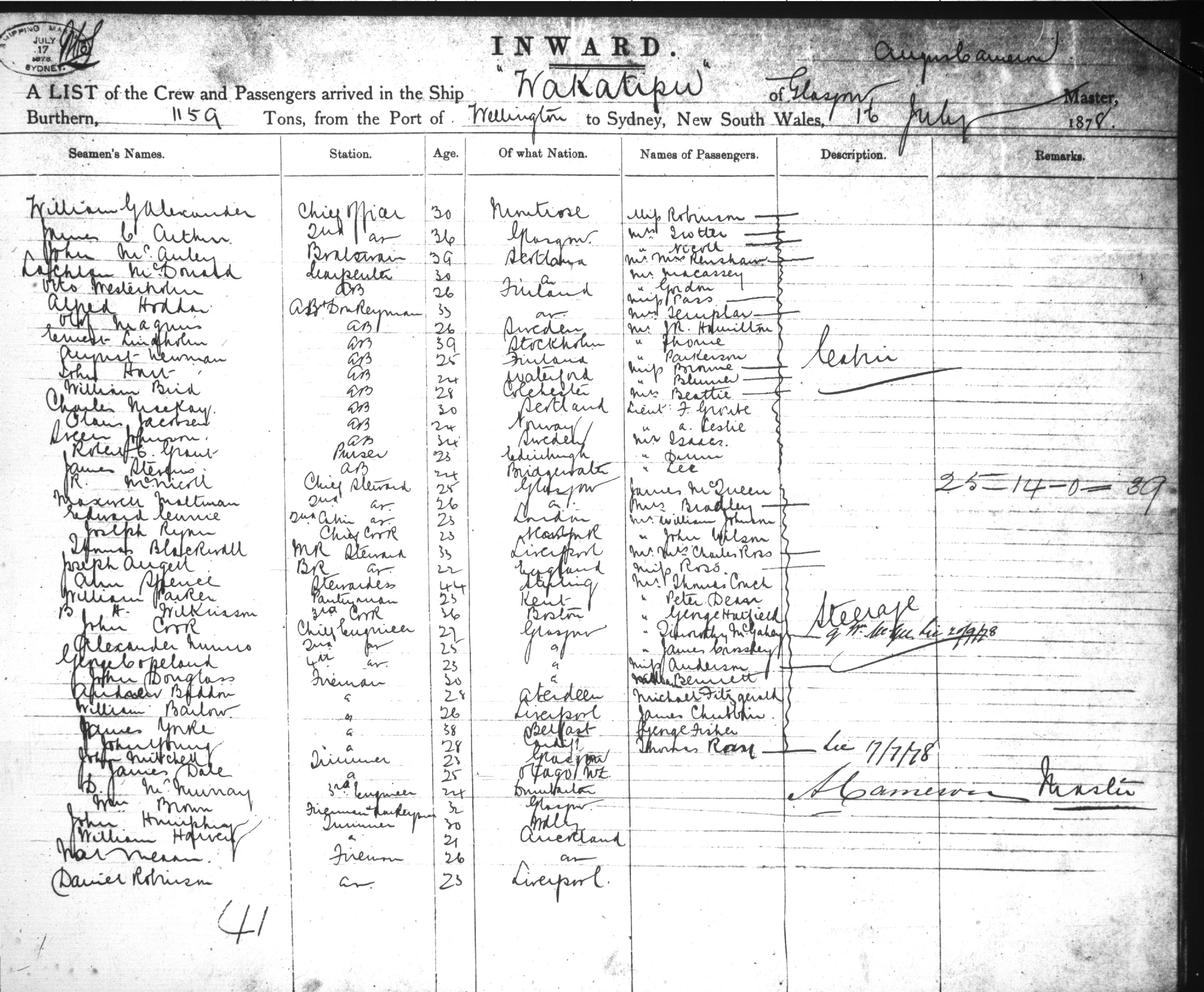 SHIPPING MA
JULY
17
1878
SYDNEY.
INWARD.
Angus Cameron
A LIST of the Crew and Passengers arrived in the Ship "Wakatipu" of Glasgow Master,
Burthern, 1159 Tons, from the Port of Wellington to Sydney, New South Wales, 16 July 1878.
Seamen's Names. Station. Age. Of what Nation. Names of Passengers. Description. Remarks.
William G Alexander Chief Officer 30 Montrose Miss Robinson
James C Arthur 2nd do 36 Glasgow Mrs Trotter
John McAuley Boatswain 39 Scotland " Nicoll
Lachlan McDonald Carpenter 30 do Mr Mrs Renshaw
Otto Westerholm AB 26 Finland Mr Macassey
Alfred Hoddar AB & Donkeyman 33 do " Gordon
Olof Magnus AB 26 Sweden Miss Pass
Ernest Lindholm AB 39 Stockholm Mrs Templar
August Newman AB 25 Finland Mr J.R. Hamilton
John Hart AB 24 Waterford " Thorne
William Bird AB 28 Colchester " Parkerson
Charles MacKay AB 30 Scotland Miss Browne
Olaus Jacobsen AB 24 Norway " Blumer
Sveen Johnson AB 34 Sweden Mrs Beattie
Robert C. Grant Purser 23 Edinburgh Lieut. F Groube
James Stevens AB 24 Bridgewater " A. Leslie
R. McNicoll Chief Steward 25 Glasgow Mr Isaacs
Maxwell Maltman 2nd do 26 " " Dunn
Edward Rennie 2nd Cabin do 23 London " Lee
Joseph Rynn Chief Cook 23 James McQueen
Thomas Blackwall MR Steward 33 Liverpool Mrs Bradley
Joseph Angell BR do 22 England Mr William Johnson
Ann Spence Stewardess 44 Stirling " John Wilson
William Parker Pantryman 23 Kent Mr Mrs Charles Ross
B H. Wilkinson 3rd Cook 36 Boston Miss Ross
John Cook Chief Engineer 27 Glasgow Mr Thomas Couch
Alexander Munro 2nd do 25 " " Peter Dease
George Copeland 4th do 23 " " George Hatfield
John Douglass Fireman 30 " " Timorothy McGahey
Andrew Baddon " 28 Aberdeen " James Crosskey
William Barlow " 26 Liverpool Miss Anderson
James Yorke " 38 Belfast Bennett
John Young " 28 Cardiff Michael Fitzgerald
John Mitchell Trimmer 23 Glasgow James Chubbin
James Dale " 25 Otago NZ George Fisher
D. McMurray 3rd Engineer 24 Dumbarton Thomas Roan
Wm Brown Fireman & Donkeyman 32 Glasgow
John Humphry Trimmer 30 Wells
William Harvey " 21 Auckland
Fireman 26 do
Daniel Robinson do 23 Liverpool.
41
Cabin
25-14-0= 39
Steerage
7/7/78
A Cameron Master